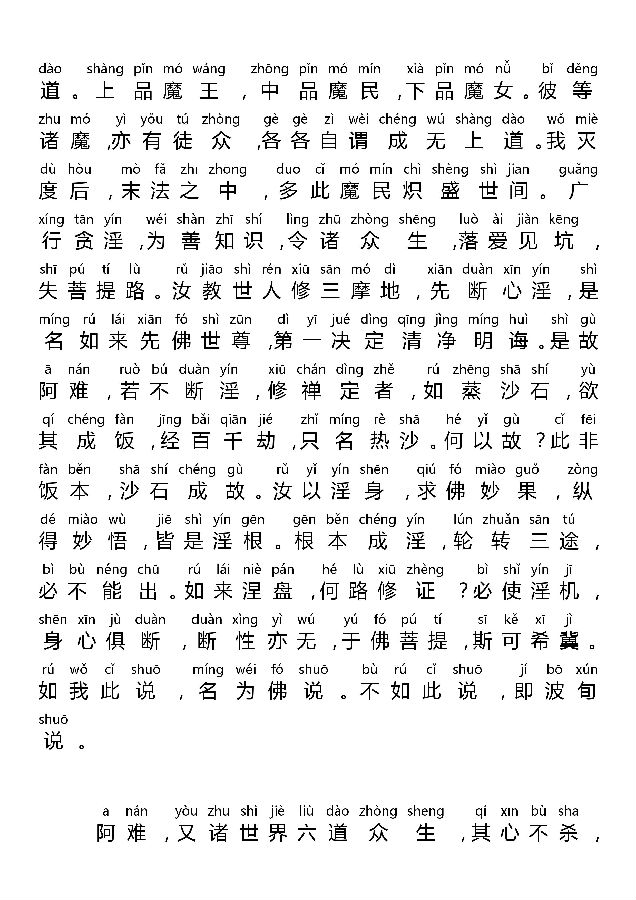 dào shàng pǐn mó wáng zhōng pǐn mó mín xià pǐn mó nǚ bǐ děng
道。上品魔王,中品魔民,下品魔女。彼等
zhu mó yì yǒu tú zhòng gè gè zì wèi chéng wú shàng dào wǒ miè
诸魔,亦有徒众,各各自谓成无上道。我灭
dù hòu mò fǎ zhı zhong duo cǐ mó mín chì shèng shì jian guǎng
度后,末法之中,多此魔民炽盛世间。广
xíng tān yín wéi shàn zhī shí lìng zhū zhòng shēng luò ài jiàn kēng
行贪淫,为善知识,令诸众生,落爱见坑,
shī pú tí lù rǔ jiāo shì rén xiū sān mó dì xiān duàn xīn yín shì
失菩提路。汝教世人修三摩地,先断心淫,是
míng rú lái xiān fó shì zūn dì yī jué dìng qīng jìng míng huì shì gù
名如来先佛世尊,第一决定清净明诲。是故
ā nán ruò bú duàn yín xiū chán dìng zhě rú zhēng shā shí yù
阿难,若不断淫,修禅定者,如蒸沙石,欲
qí chéng fàn jīng bǎi qiān jié zhǐ míng rè shā hé yǐ gù cǐ fēi
其成饭,经百千劫,只名热沙。何以故?此非
fàn běn shā shí chéng gù rǔ yǐ yín shēn qiú fó miào guǒ zòng
饭本,沙石成故。汝以淫身,求佛妙果,纵
dé miào wù jiē shì yín gēn gēn běn chéng yín lún zhuǎn sān tú
得妙悟,皆是淫根。根本成淫,轮转三途,
bì bù néng chū rú lái niè pán hé lù xiū zhèng bì shǐ yín jī
必不能出。如来涅盘,何路修证?必使淫机,
shēn xīn jù duàn duàn xìng yì wú yú fó pú tí sī kě xī jì
身心俱断,断性亦无,于佛菩提,斯可希冀。
rú wǒ cǐ shuō míng wéi fó shuō bù rú cǐ shuō jí bō xún
如我此说,名为佛说。不如此说,即波旬
shuō
说。
a nán yòu zhu shì jiè liù dào zhòng sheng qí xın bù sha
阿难,又诸世界六道众生,其心不杀,